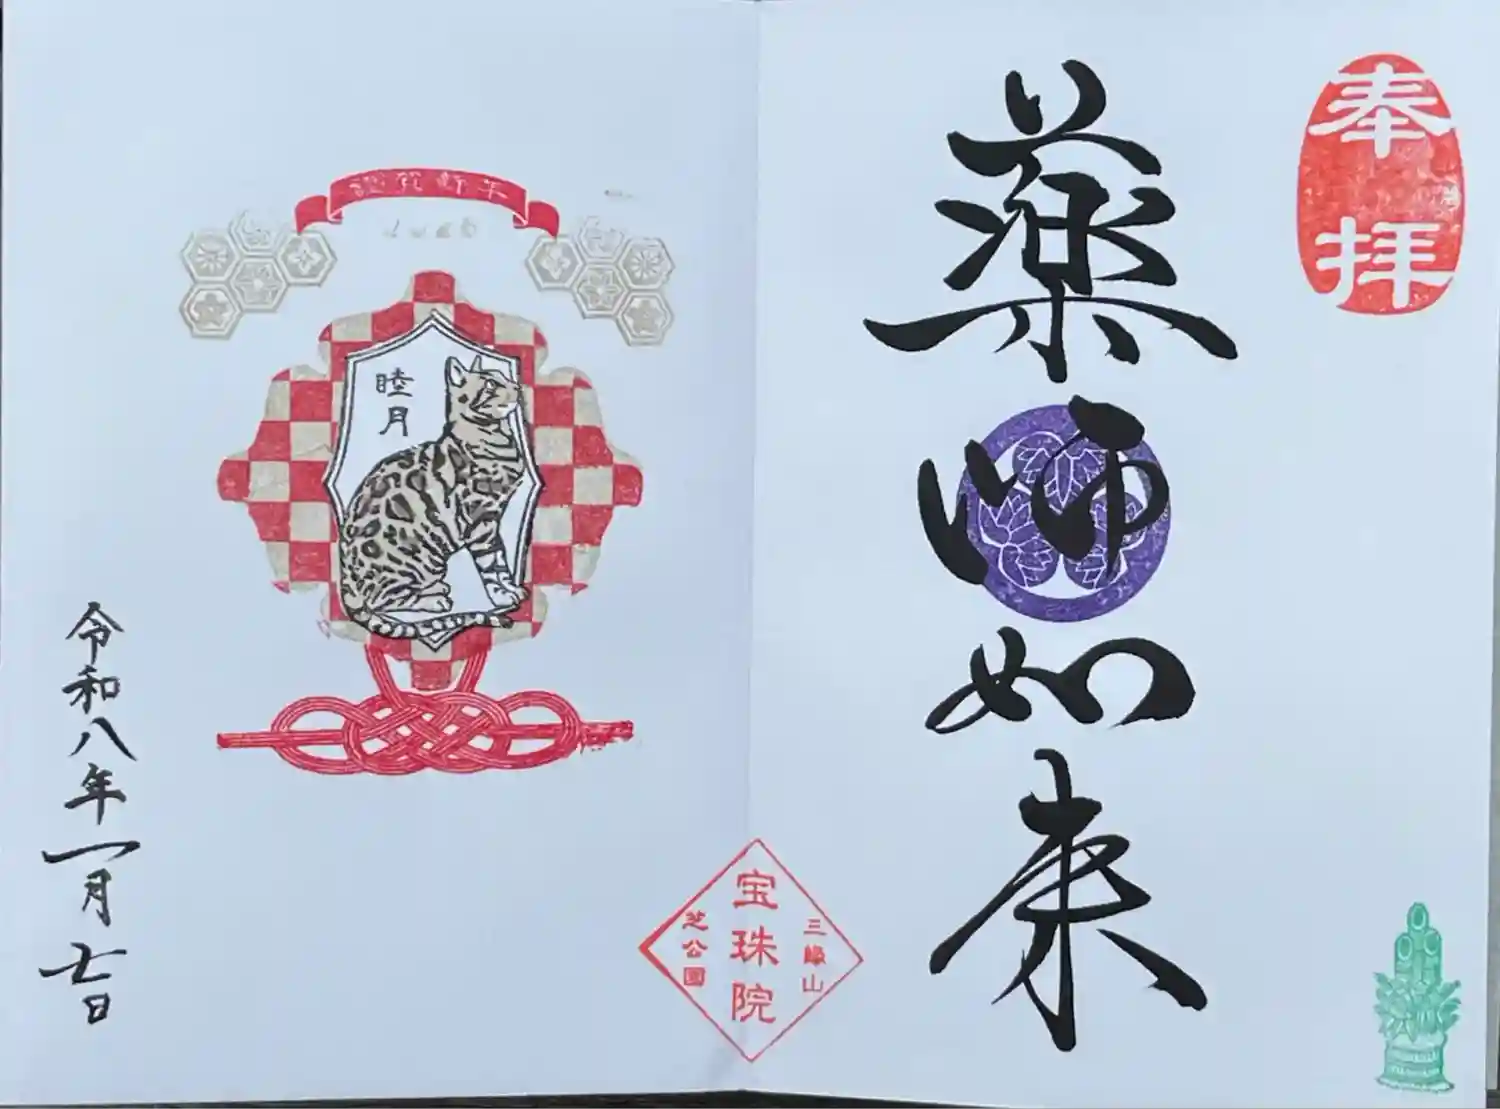 奉拝
薬師如来
三縁山
宝珠院
芝公園
謹賀新年
睦月
令和八年一月七日